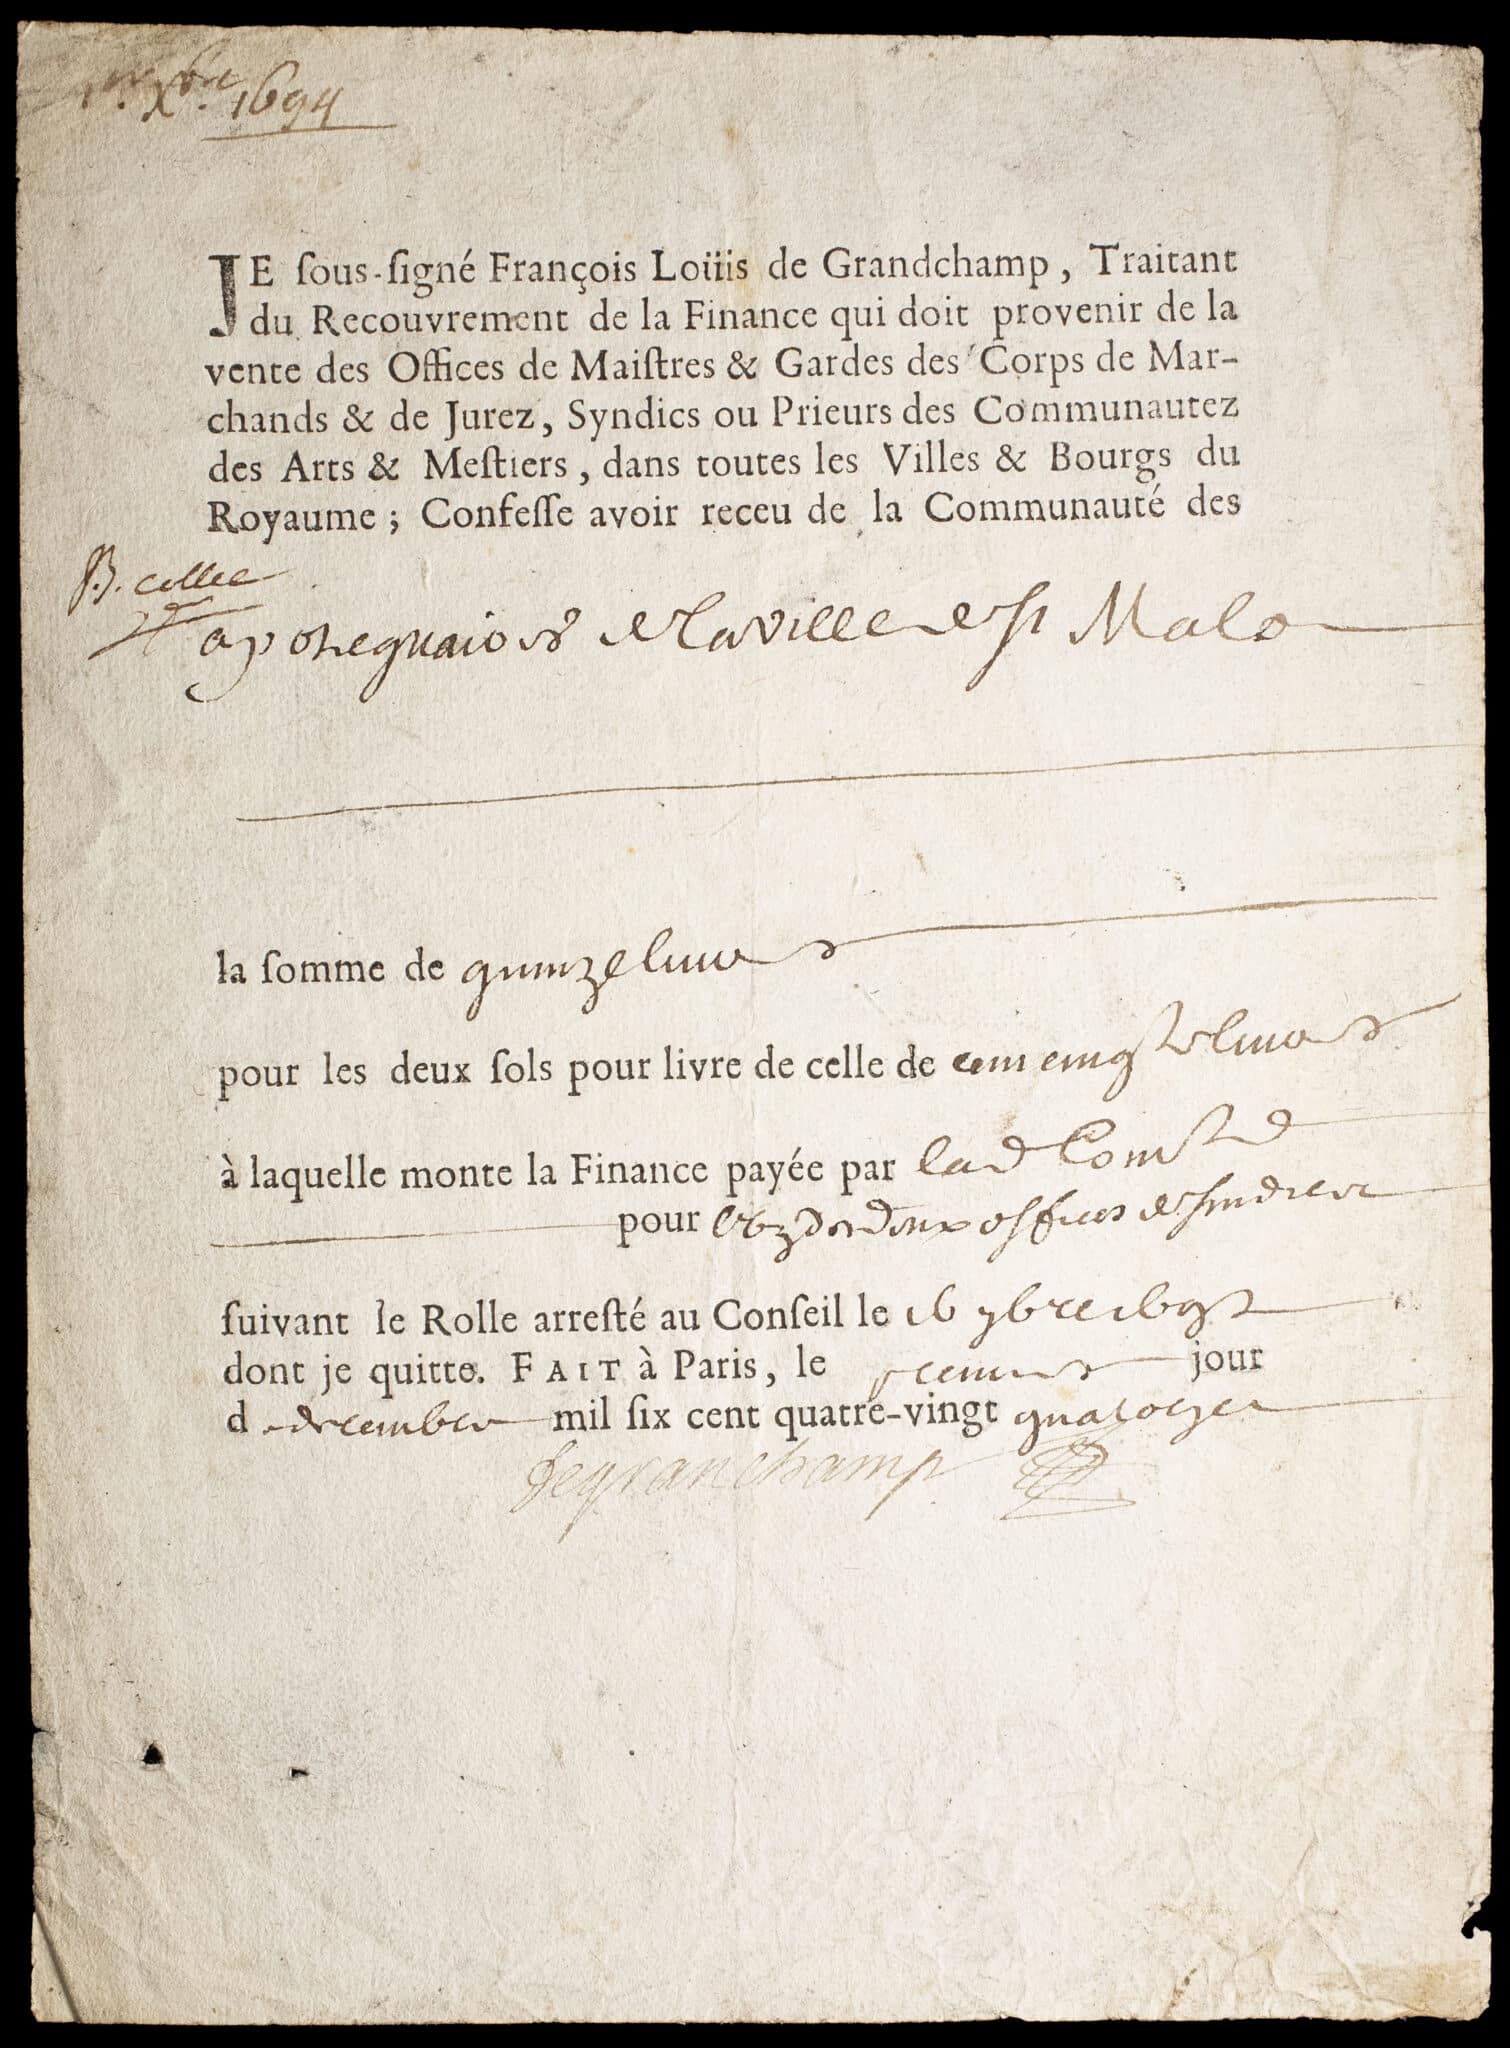 1er. Xbre. 1694
JE ſous-ſigné François Loüis de Grandchamp, Traitant
du Recouvrement de la Finance qui doit provenir de la
vente des Offices de Maiſtres & Gardes des Corps de Mar-
chands & de Jurez, Syndics ou Prieurs des Communautez
des Arts & Meſtiers, dans toutes les Villes & Bourgs du
Royaume ; Confeſſe avoir receu de la Communauté des
apotequaires de la ville de st Malo
la ſomme de quinze livres
pour les deux ſols pour livre de celle de cent cinqte livres
à laquelle monte la Finance payée par lad Comte
pour deux offices de sindics
ſuivant le Rolle arreſté au Conſeil le 16
dont je quitte. FAIT à Paris, le premier jour
d decembre mil ſix cent quatre-vingt quatorze
Degranchamp